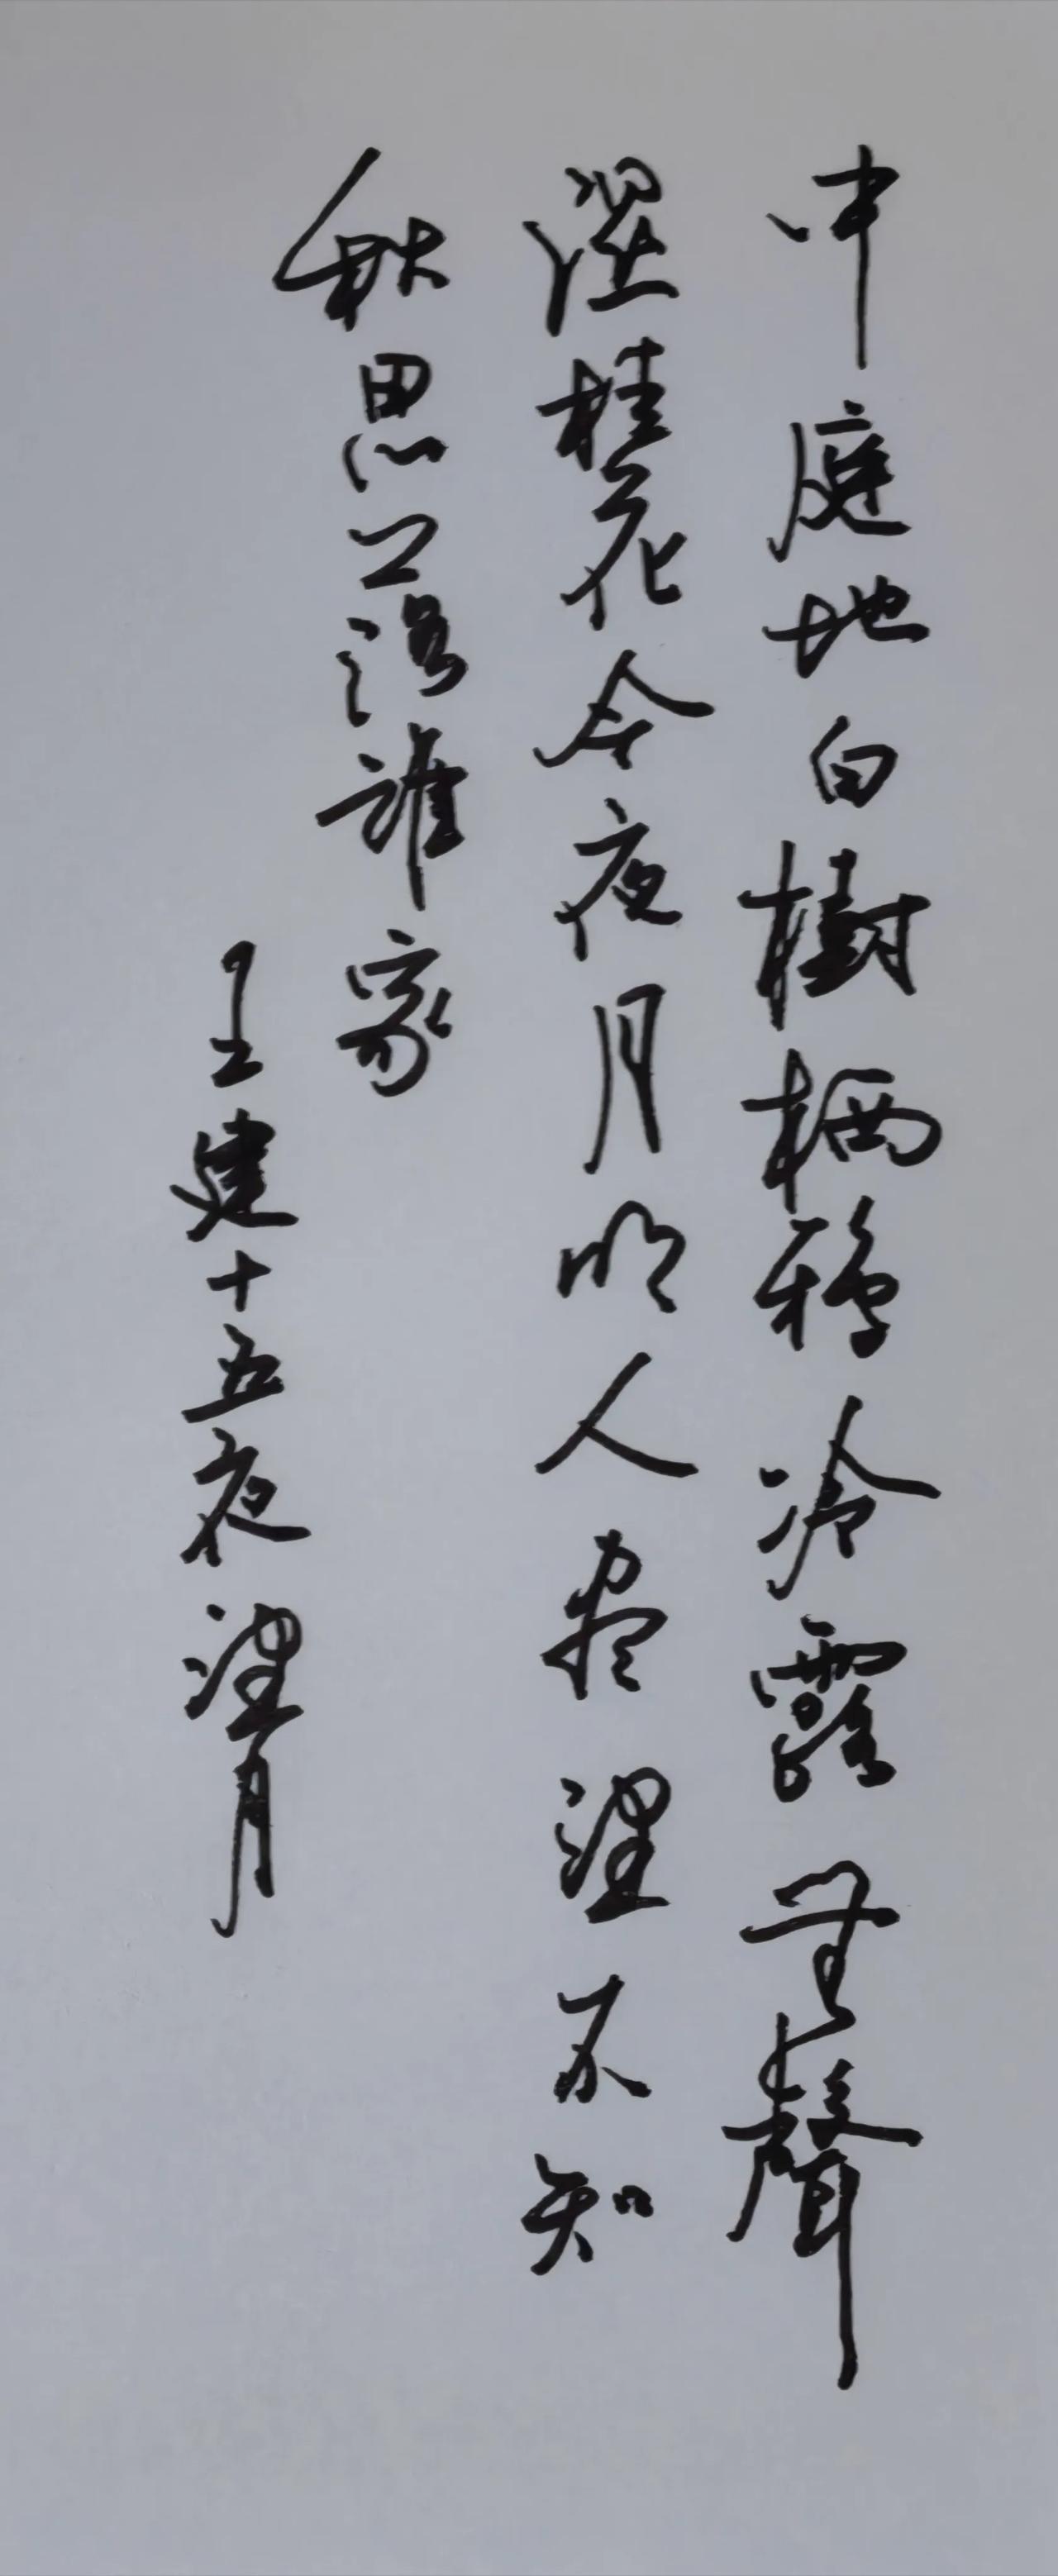 中庭地白樹栖鴉冷露無聲
濕桂花今夜月明人盡望不知
秋思落誰家
王建十五夜望月